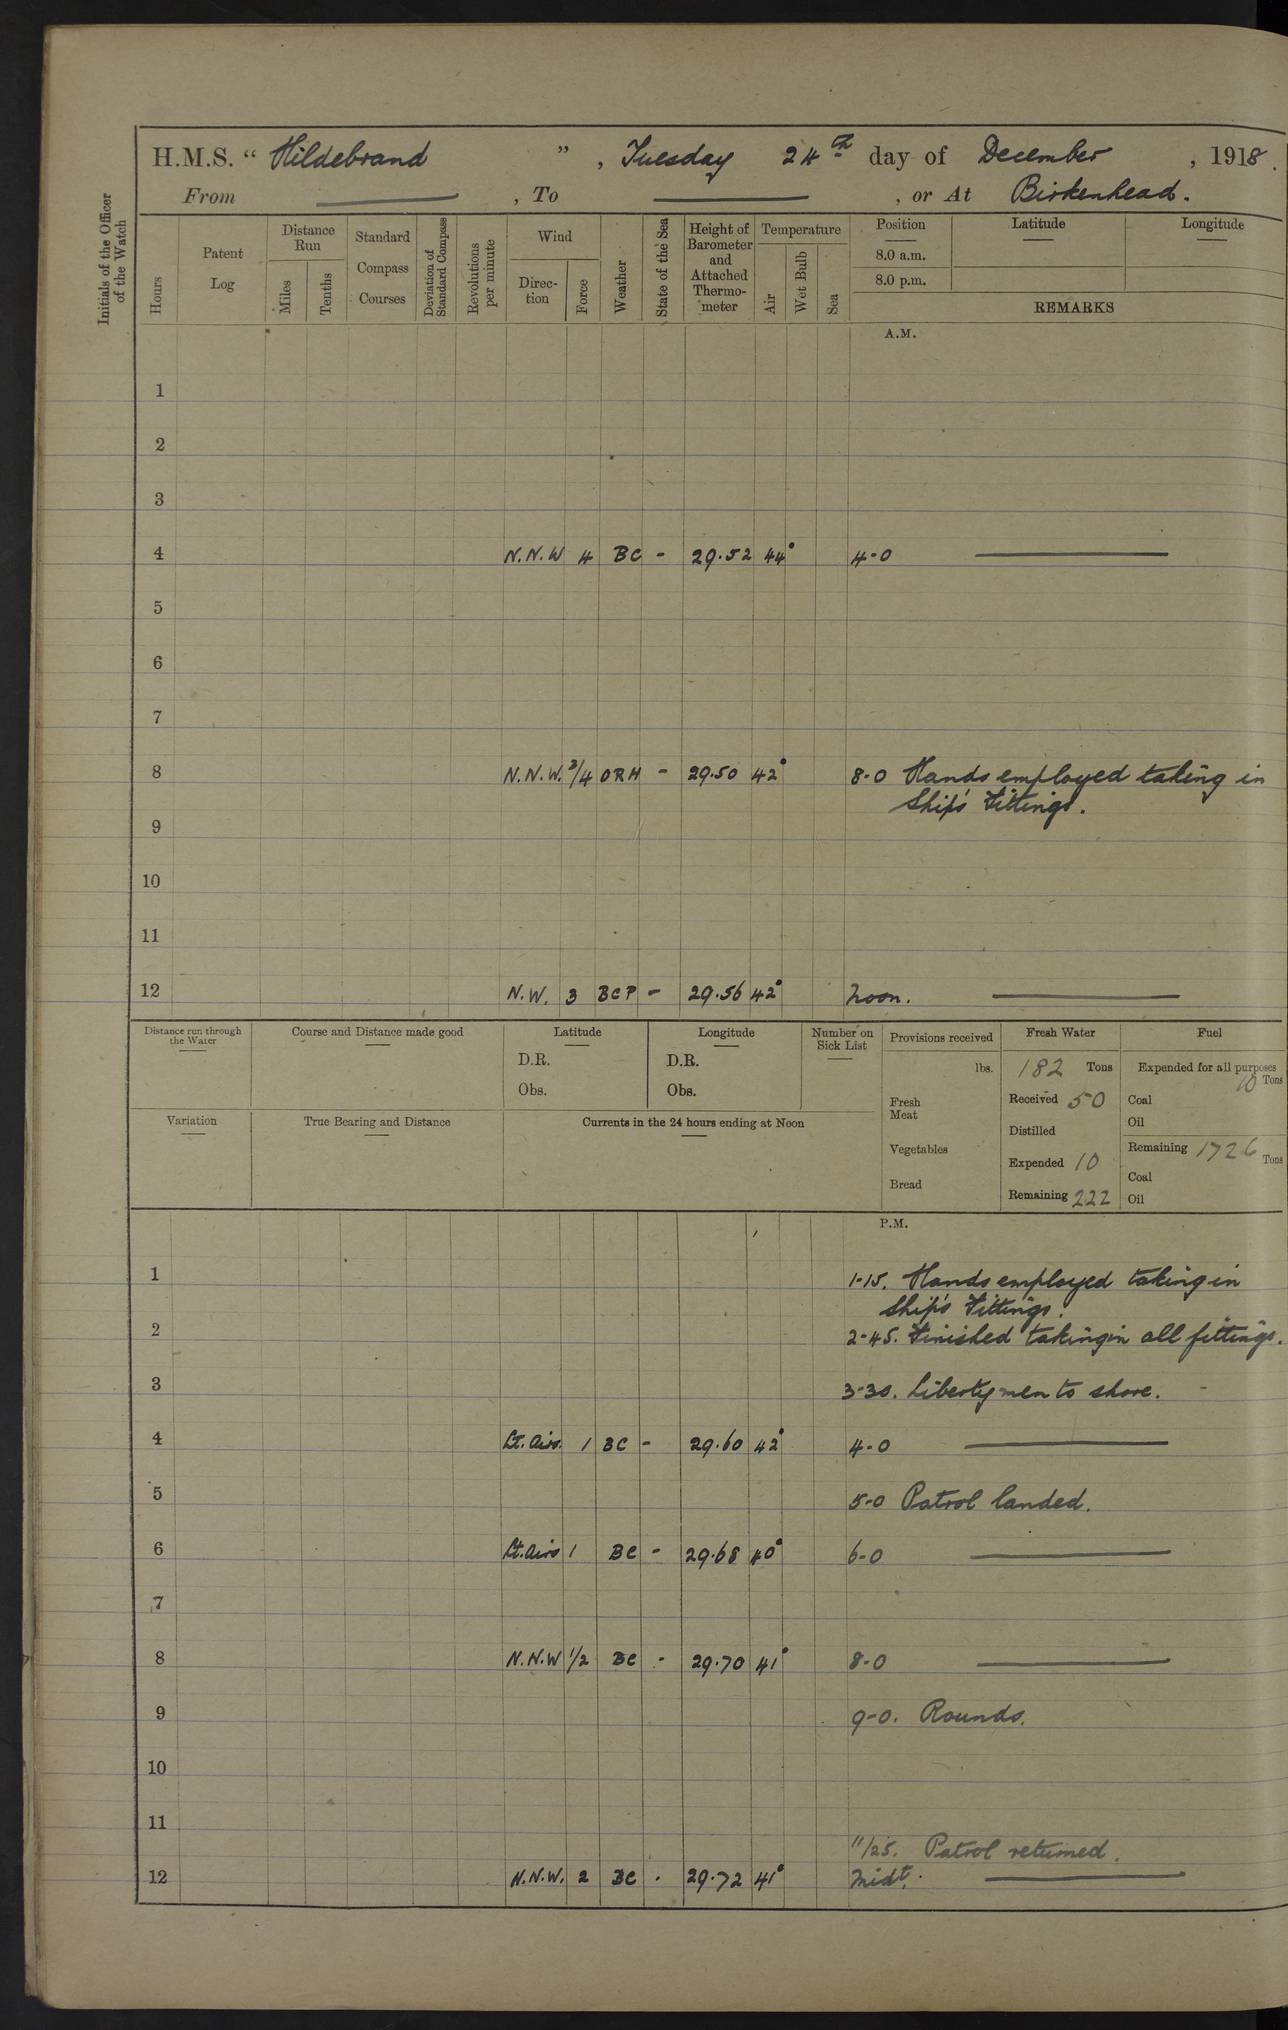 H.M.S. “ Hildebrand ” , Tuesday 24th day of December , 1918.
From ——— , To ——— , or At Birkenhead.
Initials of the Officer of the Watch
Hours
Patent Log
Distance Run
Miles
Tenths
Standard Compass Courses
Deviation of Standard Compass
Revolutions per minute
Wind
Direc-tion
Force
Weather
State of the Sea
Height of Barometer and Attached Thermo-meter
Temperature
Air
Wet Bulb
Sea
Position Latitude Longitude
8.0 a.m.
8.0 p.m.
REMARKS
A.M.
1
2
3
4 N.N.W 4 BC - 29.52 44° 4-0 ———
5
6
7
8 N.N.W. 3/4 ORM - 29.50 42° 8-0 Hands employed taking in
Ship's Fittings.
9
10
11
12 N.W. 3 BCP - 29.56 42° Noon. ———
Distance run through the Water
Course and Distance made good
Latitude
D.R.
Obs.
Longitude
D.R.
Obs.
Number on Sick List
Variation
True Bearing and Distance
Currents in the 24 hours ending at Noon
Provisions received
lbs.
Fresh Meat
Vegetables
Bread
Fresh Water
182 Tons
Received 50
Distilled
Expended 10
Remaining 222
Fuel
Expended for all purposes
10 Tons
Coal
Oil
Remaining 1726 Tons
Coal
Oil
P.M.
1 1-15. Hands employed taking in
Ship's Fittings.
2 2-45. Finished taking in all fittings.
3 3-30. Liberty men to shore.
4 Lt. Airs. 1 BC - 29.60 42° 4-0 ———
5 5-0 Patrol landed.
6 Lt. Airs 1 BC - 29.68 40° 6-0 ———
7
8 N.N.W 1/2 BC - 29.70 41° 8-0 ———
9 9-0. Rounds.
10
11
11/25. Patrol returned.
12 N.N.W. 2 BC . 29.72 41° Midt. ———